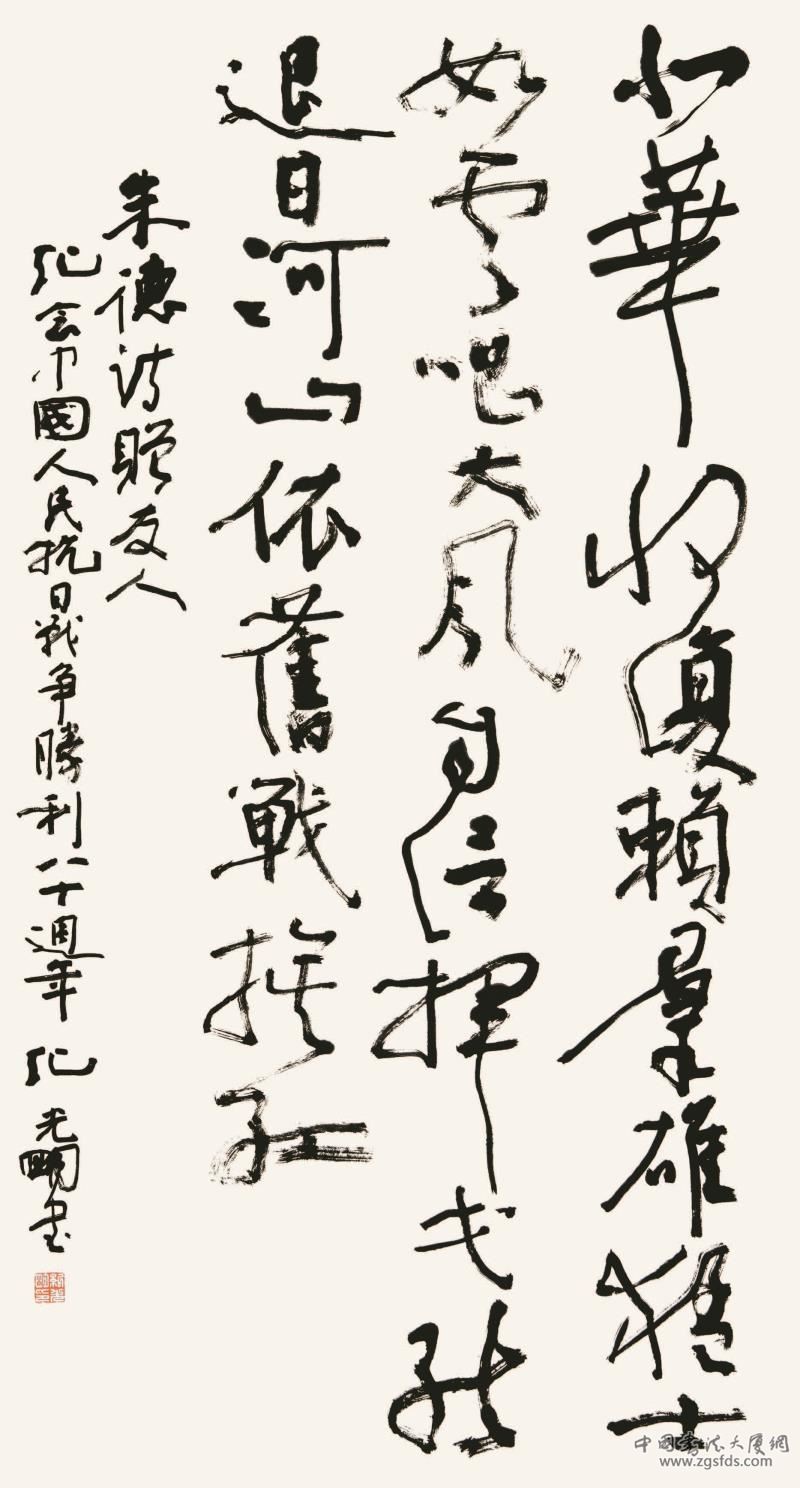 北華收復賴羣雄猛士
如雲唱大風自信揮戈能
退日河山依舊戰旗紅
朱德詩贈友人
紀念中國人民抗日戰争勝利八十週年 紀光明書
中國書法大厦網
www.zgsfds.com